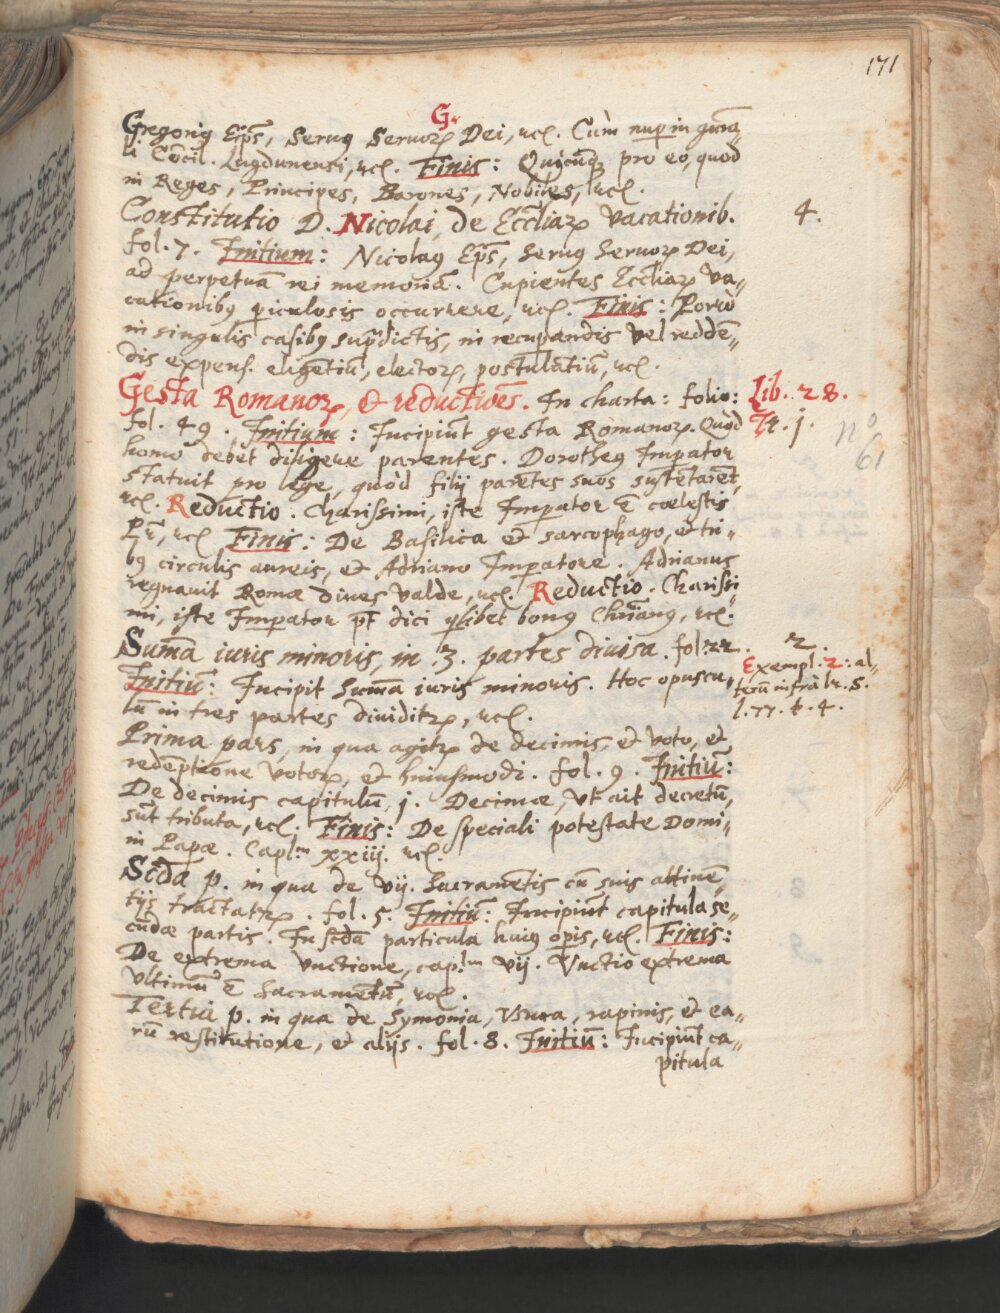 171
Gr
Gregoriꝰ Ep̄s, Seruꝰ Seruoꝝ Dei, ꝛc. Cùm nuper in gn̄ra-
li Cōcil. Lugdunensi, ꝛc. Finis: Quicūqꝫ pro eo, quod
in Reges, Principes, Barones, Nobiles, ꝛc.
Constitutio D. Nicolai, de Eccl̄iaꝝ vacationib. 4.
fol. 7. Initium: Nicolaꝰ Ep̄s, Seruꝰ Seruoꝝ Dei,
ad perpetuā rei memoriā. Cupientes Eccl̄iaꝝ va„
cationibꝰ piculosis occurrere, ꝛc. Finis: Porrò
in singulis casibꝰ sup̄dictis, in recupandis vel reddē„
dis expens. eligētiū, electoꝝ, postulatiū, ꝛc.
Gesta Romanoꝝ, & reductiōes. In charta: folio: Lib. 28.
fol. 49. Initium: Incipiūt gesta Romanoꝝ. Quòd Tr. j. no 61
homo debet diligere parentes. Dorotheꝰ Impator
statuit pro lege, quòd filij parētes suos sustētarēt,
ꝛc. Reductio. Charissimi, iste Imperator ē coelestis
Pr̄, ꝛc. Finis: De Basilica et sarcophago, et tri„
bꝰ circulis aureis, et Adriano Imperatore. Adrianus
regnauit Romæ diues valde, ꝛc. Reductio. Charissi„
mi, iste Imperator pt̄ dici qlibet bonꝰ Chr̄ianꝰ, ꝛc.
Sum̄a iuris minoris, in .3. partes diuisa. fol. 22. 2
Exempl. 2: al„
terū infrà tr. 5.
l. 77. t. 4.
Initiū: Incipit Sum̄a iuris minoris. Hoc opuscu„
lū in tres partes diuiditꝝ, ꝛc.
Prima pars, in qua agitꝝ de decimis, et voto, et
redēptione votoꝝ, et huiusmodi. fol. 9. Initiū:
De decimis capitulū, j. Decimæ, vt ait decretū,
sūt tributa, ꝛc. Finis: De speciali potestate Domi„
ni Papæ. Caplm xxiij. ꝛc.
Scd̄a p. in qua de vij. Sacramētis cū suis attinē„
tijs tractatꝝ. fol. 5. Initiū: Incipiūt capitula se„
cūdæ partis. In scd̄a particula huiꝰ opis, ꝛc. Finis:
De extrema vnctione, caplm vij. Vnctio extrema
vltimū ē Sacramētū, ꝛc.
Tertia p. in qua de Symonia, vsura, rapinis, et ea„
rū restitutione, et alijs. fol. 8. Initiū: Incipiūt ca„
pitula